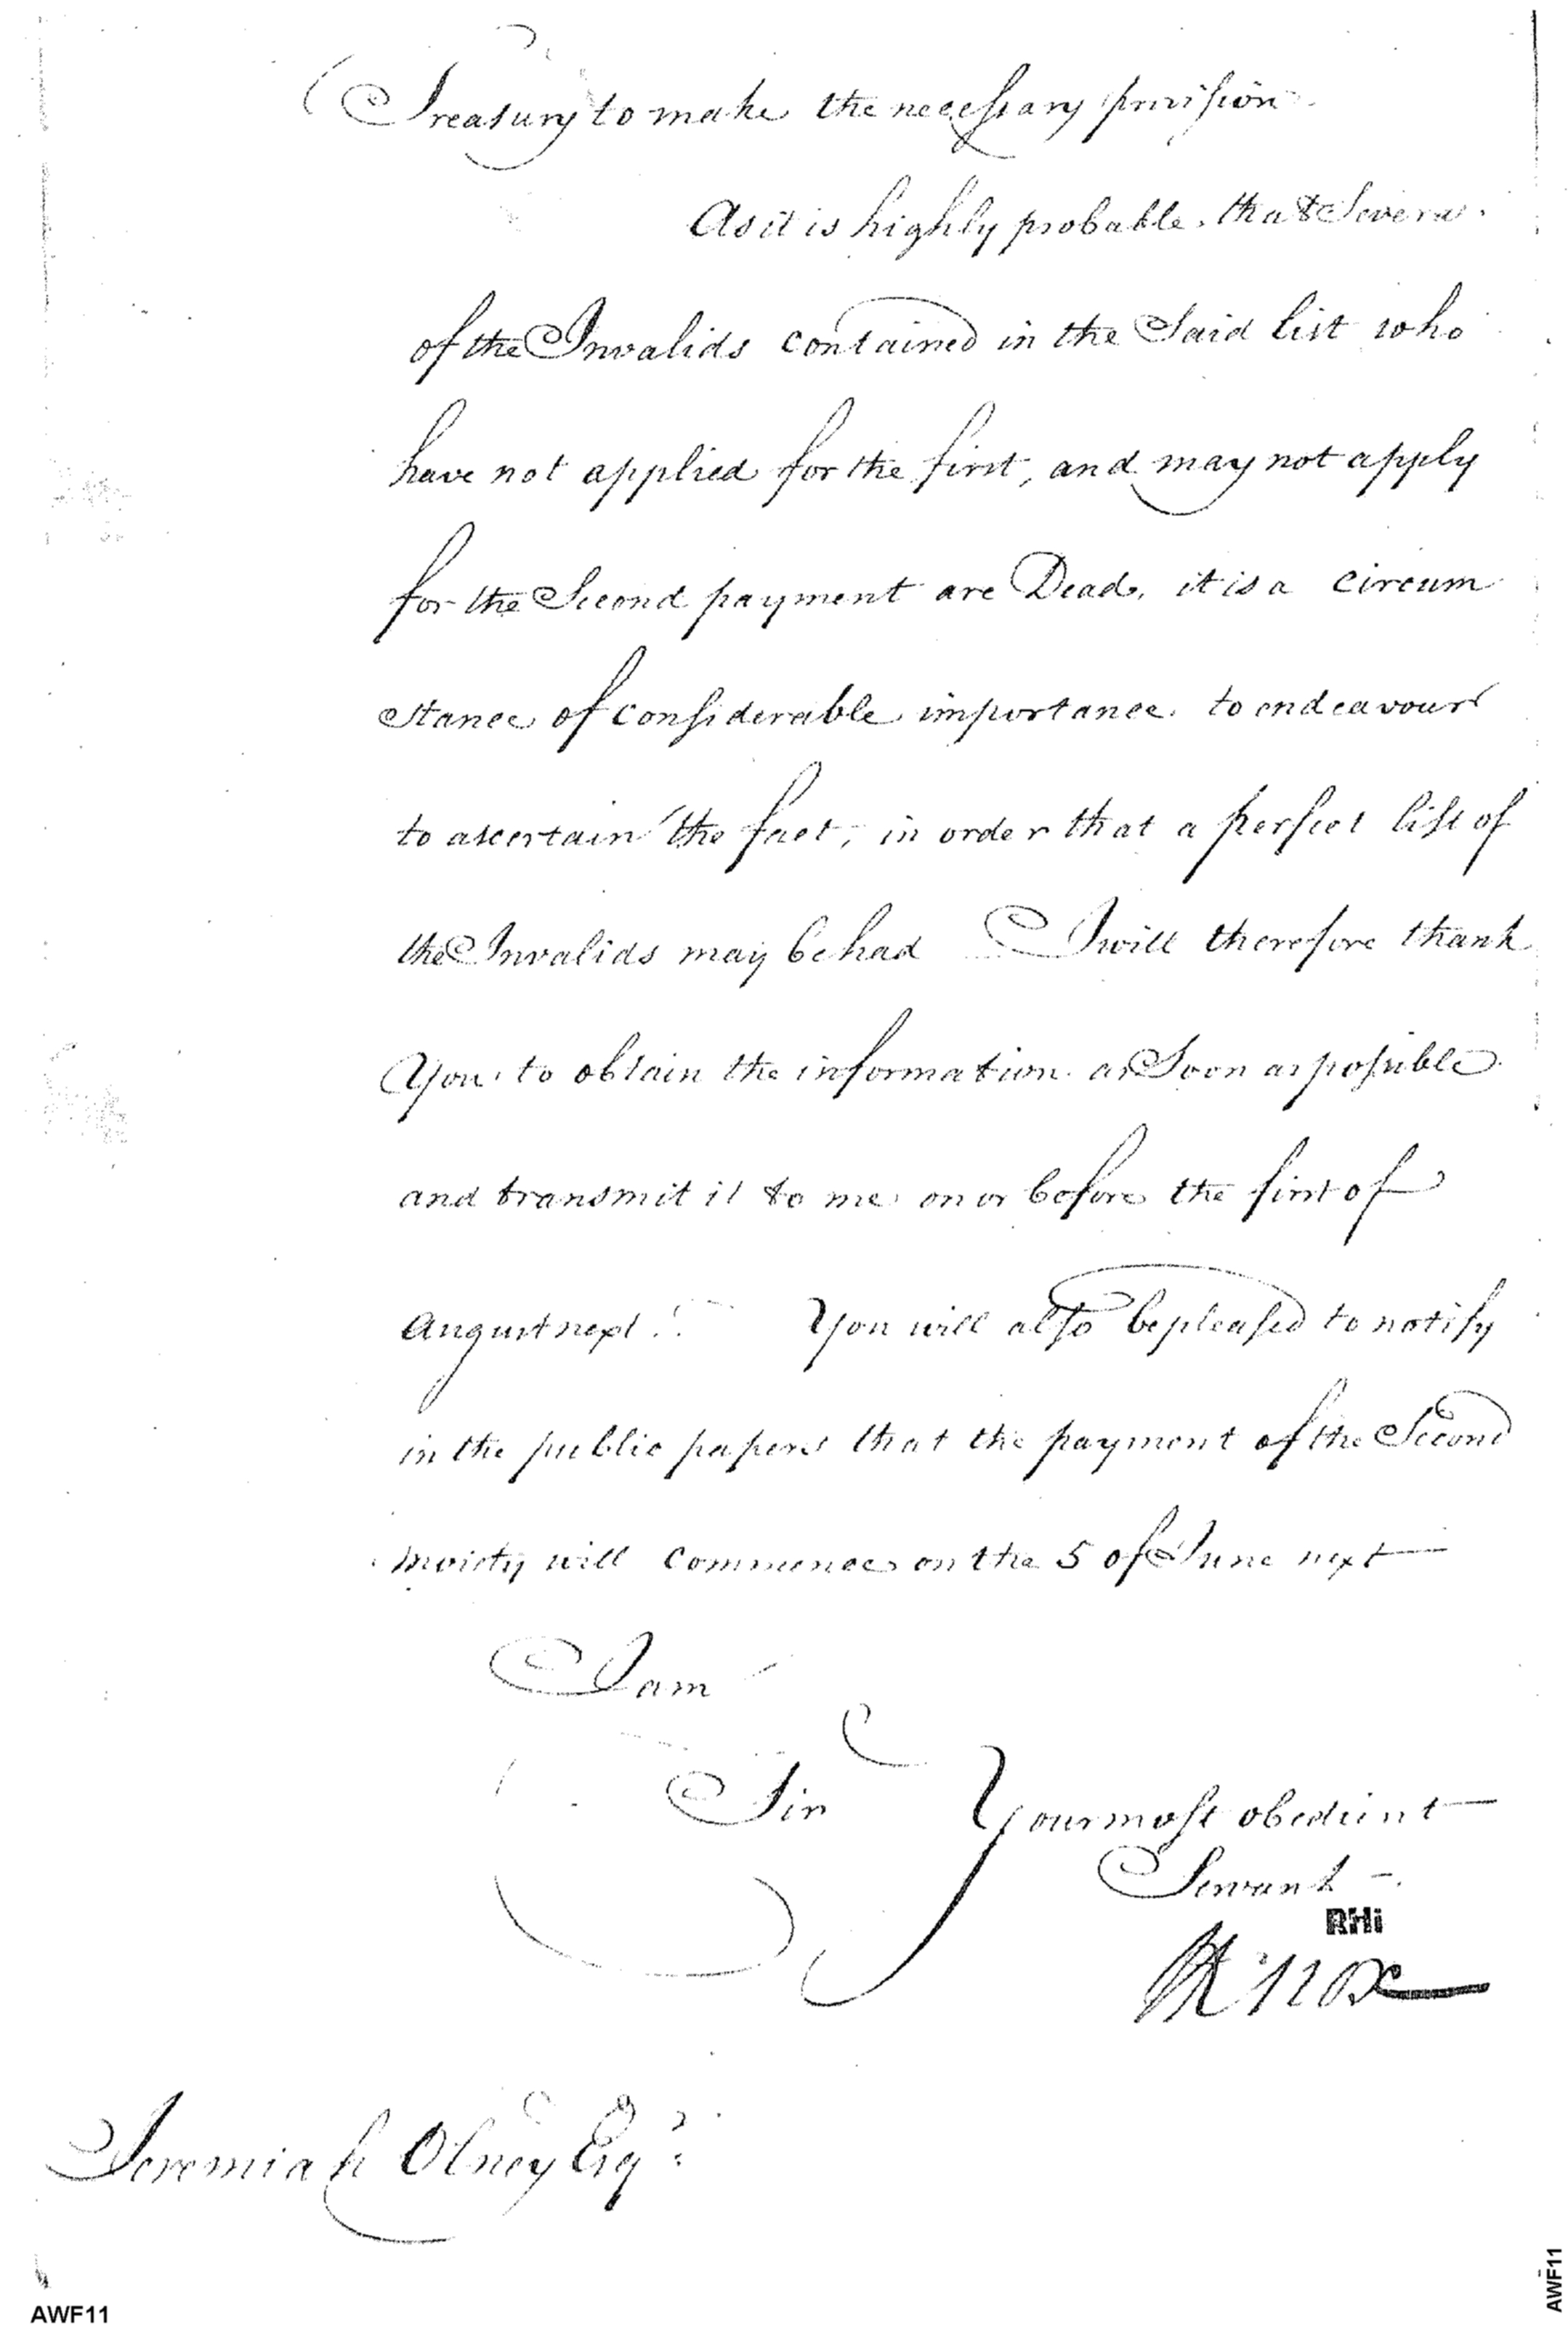 Treasury to make the necessary provision
As it is highly probable that Several
of the Invalids contained in the Said list who
have not applied for the first, and may not apply
for the Second payment are Dead, it is a circum
stance of considerable importance to endeavour
to ascertain the fact, in order that a perfect list of
the Invalids may be had I will therefore thank
You to obtain the information as Soon as possible
and transmit it to me on or before the first of
August next. You will also be pleased to notify
in the public papers that the payment of the Second
moiety will commence on the 5 of June next
I am
Sir
Your most obedient
Servant
RHi
HKnox
Jeremiah Olney Esqr.
AWF11
AWF11